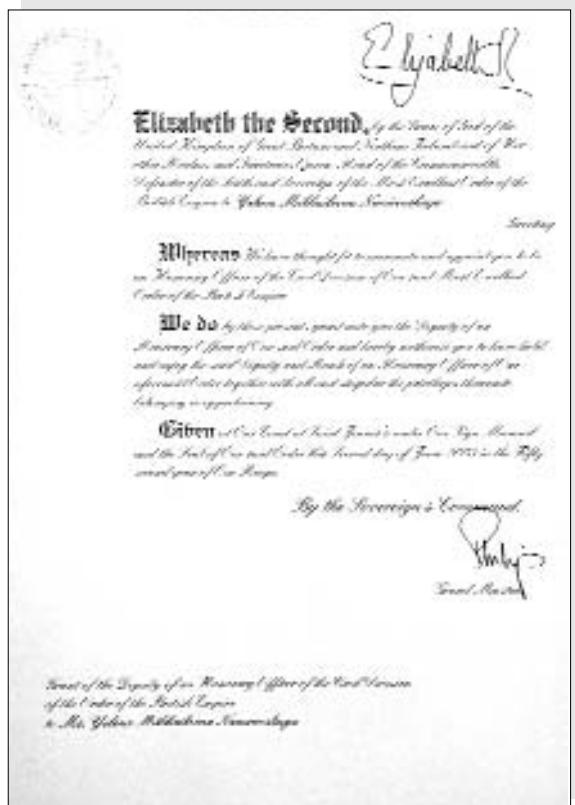 Elizabeth R
Elizabeth the Second, by the Grace of God of the
United Kingdom of Great Britain and Northern Ireland and of Her
other Realms and Territories Queen, Head of the Commonwealth,
Defender of the Faith and Sovereign of the Most Excellent Order of the
British Empire to Yelena Mikhailovna
Greeting
Whereas We have thought fit to nominate and appoint you to be
an Honorary Officer of the Civil Division of Our said Most Excellent
Order of the British Empire
We do by these presents grant unto you the Dignity of an
Honorary Officer of Our said Order and hereby authorise you to have hold
and enjoy the said Dignity and Rank of an Honorary Officer of Our
aforesaid Order together with all and singular the privileges thereunto
belonging or appertaining.
Given at Our Court at Saint James's under Our Sign Manual
and the Seal of Our said Order this Second day of June in the Fifty
second year of Our Reign.
By the Sovereign's Command.
Philip
Grand Master
Grant of the Dignity of an Honorary Officer of the Civil Division
of the Order of the British Empire
to Ms. Yelena Mikhailovna